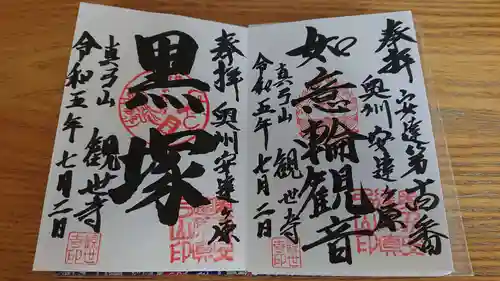 奉拝 安達第十高番
奥州安達ヶ原
如意輪観音
真弓山 観世寺
令和五年七月二日
奉拝 奥州安達ヶ原
黒塚
真弓山 観世寺
令和五年七月二日